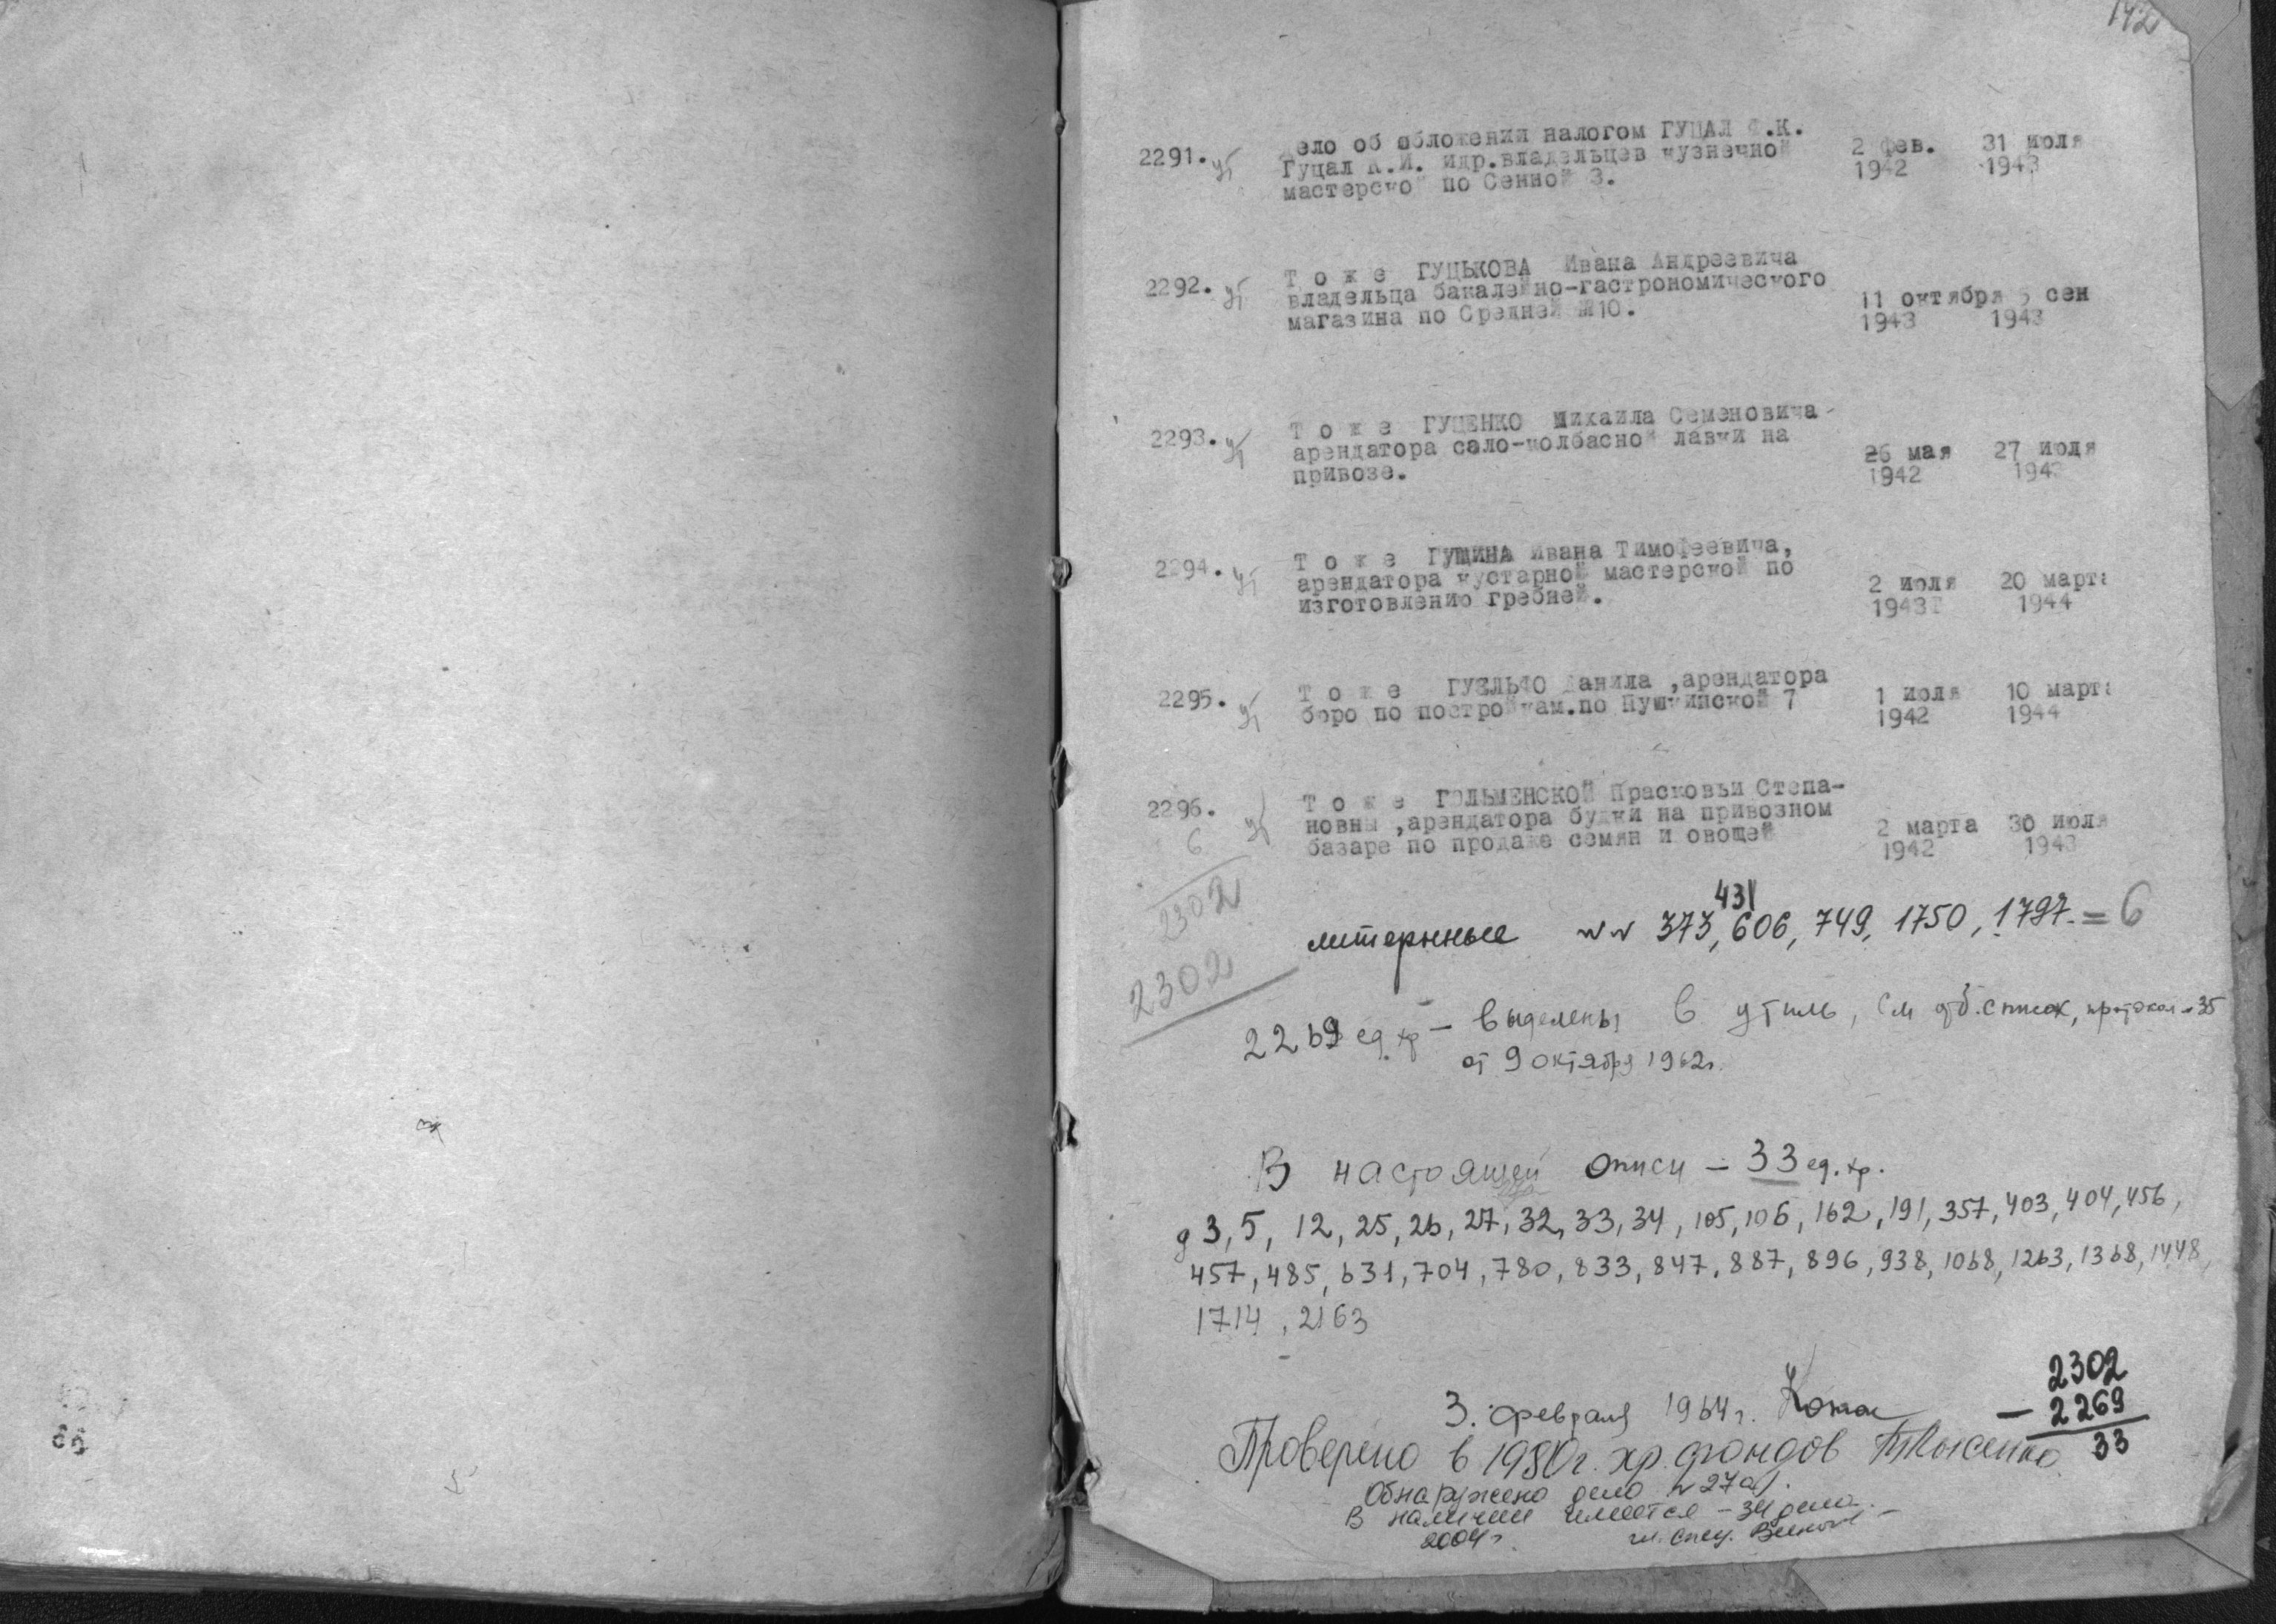 142
2291. ут
ело об обложении налогом ГУЦАЛ .К.
Гуцал К.И. идр.владельцев кузнечной
мастерской по Сенной 3.
2 фев. 31 июля
1942 1943
2292. ут
Т о ж е ГУЦЬКОВА Ивана Андреевича
владельца бакалейно-гастрономического
магазина по Средней №10.
11 октября 5 сен
1943 1943
2293. ут
Т о ж е ГУЦЕНКО Михаила Семеновича
арендатора сало-колбасной лавки на
привозе.
26 мая 27 июля
1942 1943
2294. ут
Т о ж е ГУЩИНА Ивана Тимофеевича,
арендатора кустарной мастерской по
изготовлению гребней.
2 июля 20 марта
1943г 1944
2295. ут
Т о ж е Данила ,арендатора
бюро по постройкам.по Пушкинской 7
1 июля 10 марта
1942 1944
2296. ут
Т о ж е ГОЛЬМЕНСКОЙ Прасковьи Степа-
новны ,арендатора будки на привозном
базаре по продаже семян и овощей
2 марта 30 июля
1942 1943
6
2302
2302
431
литерные №№ 373, 606, 749, 1750, 1797. = 6
2269 ед. хр – выделены в утиль, см отб. список, протокол №35
от 9 октября 1962г.
В настоящей описи – 33 ед. хр.
д 3, 5, 12, 25, 26, 27, 32, 33, 34, 105, 106, 162, 191, 357, 403, 404, 456,
457, 485, 631, 704, 780, 833, 847, 887, 896, 938, 1068, 1263, 1368, 1448,
1714, 2163
3. февраля 1964г.
2302
– 2269
33
Проверено в 1980г. хр. фондов
Обнаружено дело №27а).
В наличии имеется – 34 дела.
2004г. гл. спец.